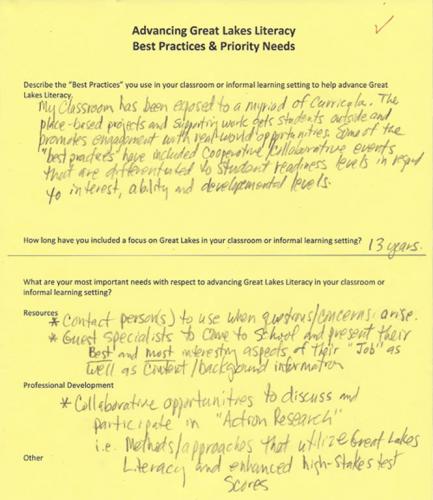 Advancing Great Lakes Literacy
Best Practices & Priority Needs
Describe the "Best Practices" you use in your classroom or informal learning setting to help advance Great
Lakes Literacy.
My Classroom has been exposed to a myriad of Curricula. The
place-based projects and supporting work gets students outside and
promotes engagement with real-world opportunities. Some of the
"best practices have included Cooperative/Collaborative events
that are differentiated to student readiness levels in regard
to interest, ability and developmental levels.
How long have you included a focus on Great Lakes in your classroom or informal learning setting? 13 years.
What are your most important needs with respect to advancing Great Lakes Literacy in your classroom or
informal learning setting?
Resources
* Contact person(s) to use when questions/concerns arise.
* Guest Specialists to Come to School and present their
Best and most interesting aspects of their "Job" as
well as Content/background information
Professional Development
* Collaborative opportunities to discuss and
participate in "Action Research"
i.e. Methods/approaches that utilize Great Lakes
Other
Literacy and enhanced high-stakes test
Scores